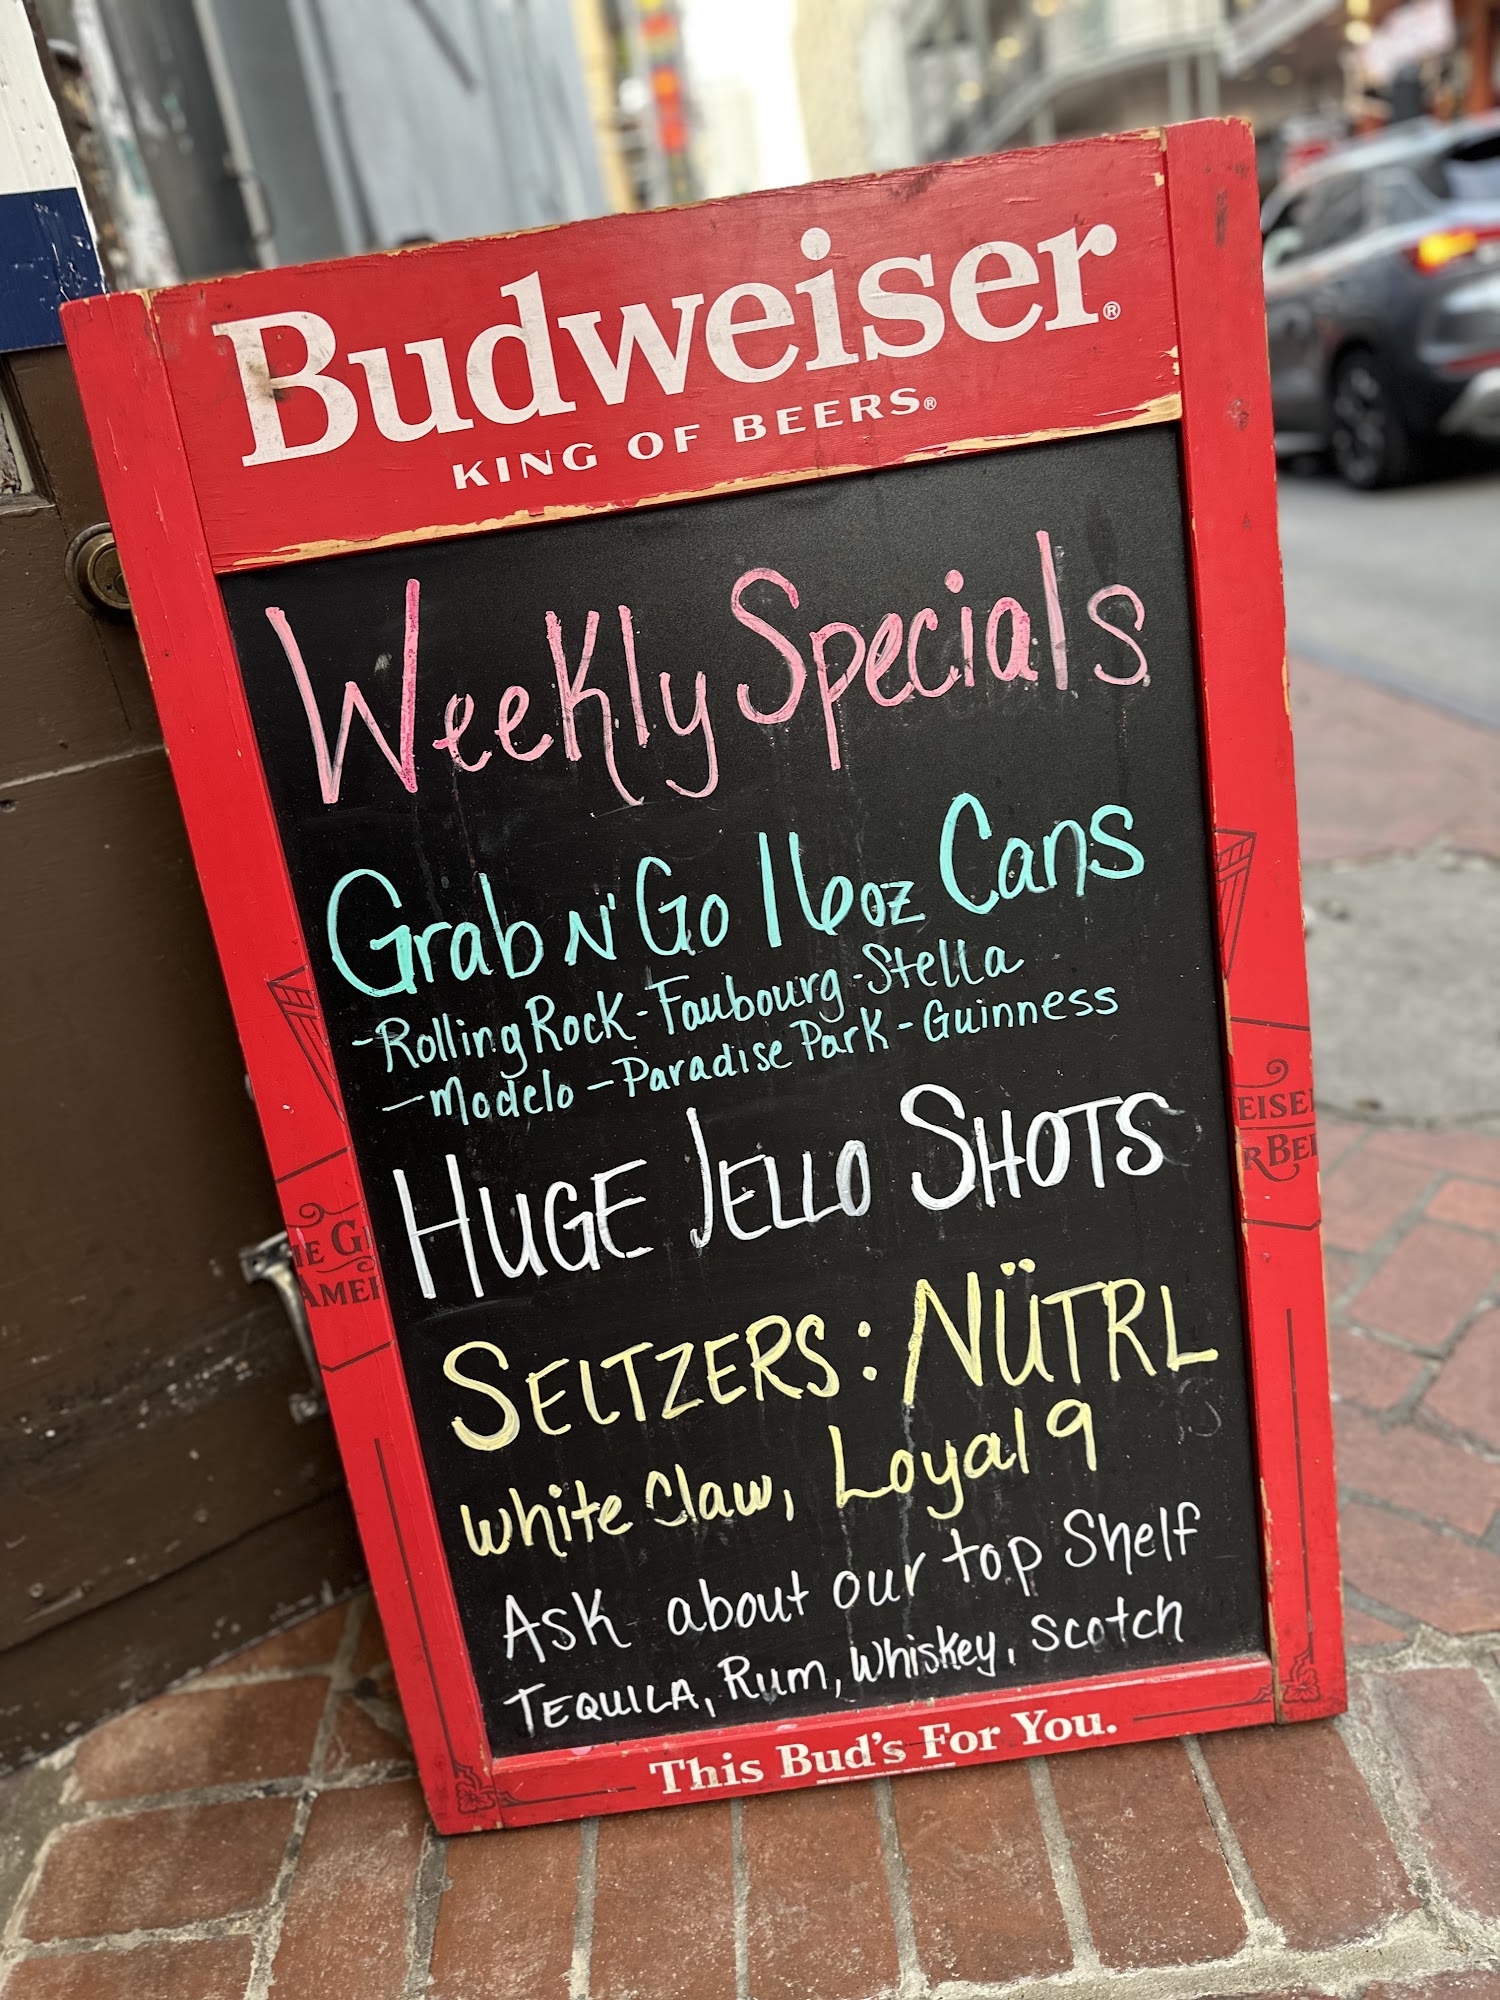 Budweiser®
KING OF BEERS®
Weekly Specials
Grab N' Go 16oz Cans
-Rolling Rock-Faubourg-Stella
-Modelo-Paradise Park-Guinness
HUGE JELLO SHOTS
SELTZERS: NÜTRL
White Claw, Loyal 9
Ask about our top Shelf
TEQUILA, Rum, Whiskey, Scotch
This Bud's For You.